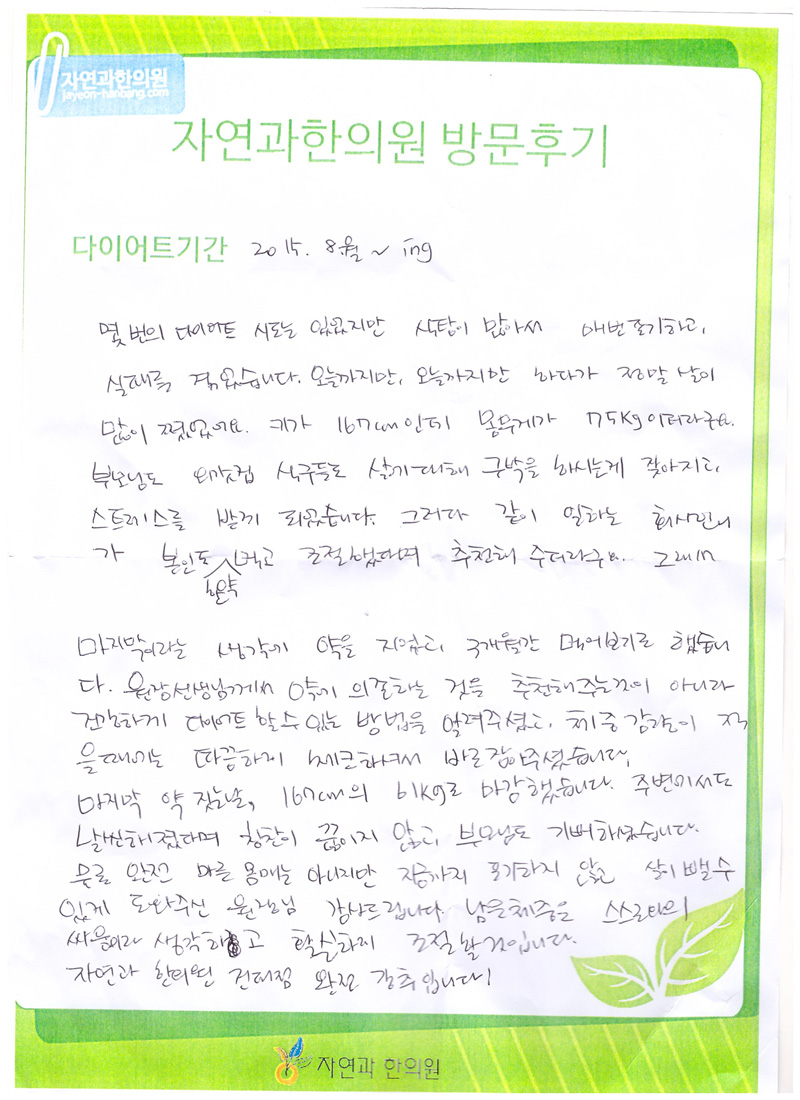 자연과한의원
jayeon-hanbang.com
자연과한의원 방문후기
다이어트기간 2015. 8.월 ~ ing
몇 번의 다이어트 시도는 있었지만 식탐이 많아서 매번 포기하고,
실패를 겪었습니다. 오늘까지만, 오늘까지만 하다가 정말 살이
많이 쪘었어요. 키가 167cm인데 몸무게가 75kg이더라구요.
부모님도 외갓집 식구들도 살에대해 구박을 하시는게 잦아지고,
스트레스를 받게 되었습니다. 그러다 같이 일하는 회사언니
가 본인도 한약 먹고 조절했다며 추천해 주더라구요. 그래서
마지막이라는 생각에 약을 지었고, 3개월간 먹어보기로 했습니
다. 원장선생님께서 약에 의존하는 것을 추천해주는것이 아니라
건강하게 다이어트 할 수 있는 방법을 알려주셨고, 체중감량이 적
을때에는 따끔하게 체크하셔서 바로잡아주셨습니다.
마지막 약 짓는날, 167cm의 61kg로 마감했습니다. 주변에서도
날씬해졌다며 칭찬이 끊이지 않고, 부모님도 기뻐하셨습니다.
물론 완전 마른 몸매는 아니지만 지금까지 포기하지 않고 살이 뺄 수
있게 도와주신 원장님 감사드립니다. 남은체중은 스스로와의
싸움이라 생각하고 확실하게 조절할 것입니다.
자연과 한의원 건대점 완전 강추입니다!
자연과 한의원